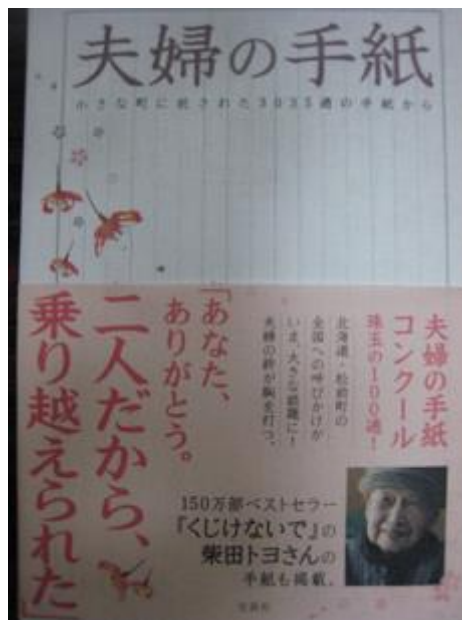 夫婦の手紙
小さな町に託された3035通の手紙から
夫婦の手紙
コンクール
珠玉の100通!
北海道・松前町の
全国への呼びかけが
いま、大きな話題に!
夫婦の絆が胸を打つ。
「あなた、
ありがとう。
二人だから、
乗り越えられた」
150万部ベストセラー
『くじけないで』の
柴田トヨさんの
手紙も掲載。
宝島社